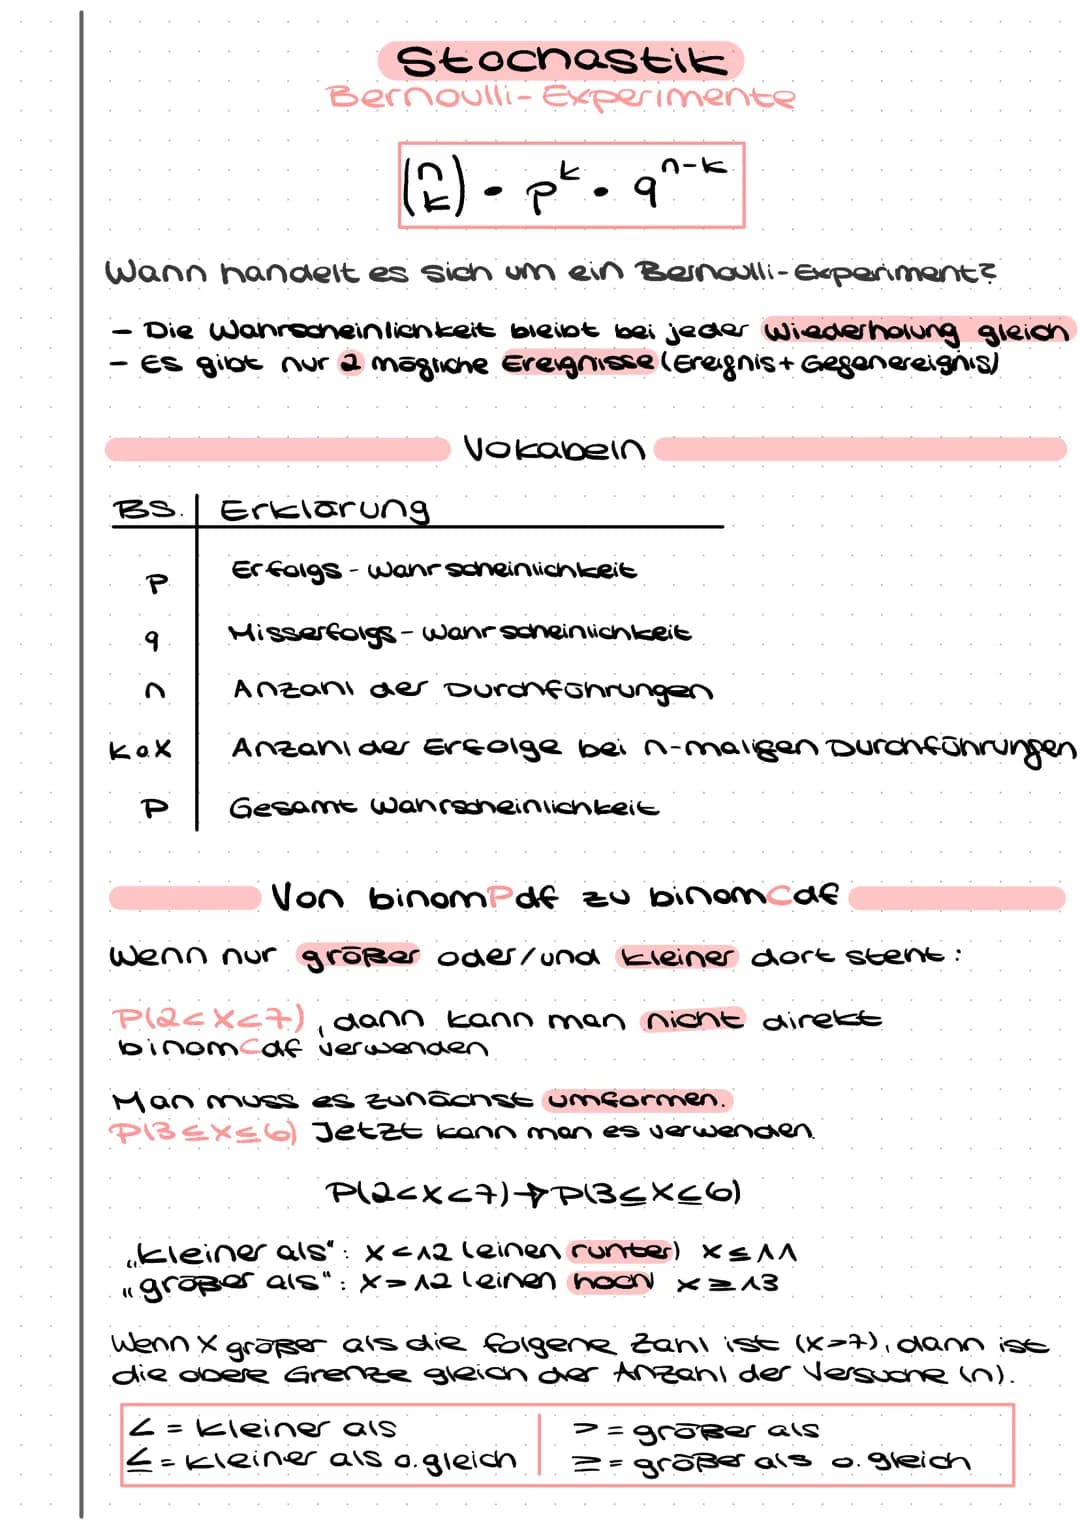 Stochastik
Bernoulli-Experimente
(n k) • p^k • q^n-k
Wann handelt es sich um ein Bernoulli-Experiment?
- Die Wahrscheinlichkeit bleibt bei jeder Wiederholung gleich
- Es gibt nur 2 mögliche Ereignisse (Ereignis + Gegenereignis)
Vokabeln
BS. Erklärung
p Erfolgs-Wahrscheinlichkeit
q Misserfolgs-Wahrscheinlichkeit
n Anzahl der Durchführungen
k o. X Anzahl der Erfolge bei n-maligen Durchführungen
P Gesamt Wahrscheinlichkeit
Von binomPdf zu binomCdf
Wenn nur größer oder/und kleiner dort steht:
P(2<X<7), dann kann man nicht direkt
binomCdf verwenden
Man muss es zunächst umformen.
P(3≤X≤6) Jetzt kann man es verwenden.
P(2<X<7)→P(3≤X≤6)
„kleiner als": X<12 (einen runter) X≤11
„größer als": X>12 (einen hoch) X≥13
Wenn X größer als die folgene Zahl ist (X>7), dann ist
die obere Grenze gleich der Anzahl der Versuche (n).
< = kleiner als > = größer als
≤ = kleiner als o. gleich ≥ = größer als o. gleich